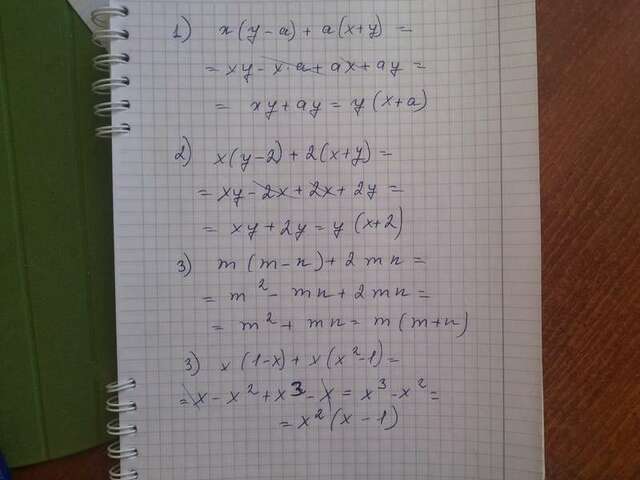 1) x(y-a)+a(x+y)=
=xy-x·a+ax+ay=
= xy+ay=y(x+a)
2) x(y-2)+2(x+y)=
=xy-2x+2x+2y=
= xy+2y=y(x+2)
3) m(m-n)+2mn=
= m²-mn+2mn=
= m²+mn=m(m+n)
3) x(1-x)+x(x²-1)=
=x-x²+x³-x=x³-x²=
=x²(x-1)